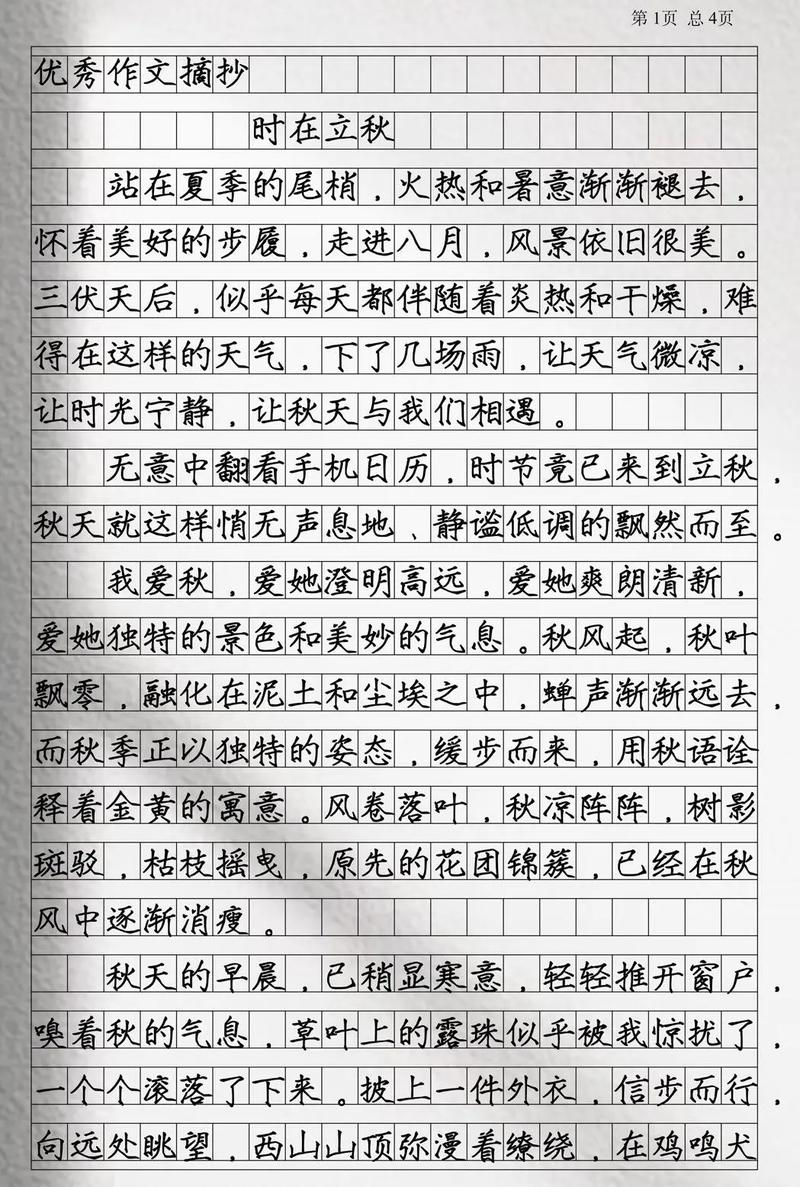 第1页 总4页
优秀作文摘抄
时在立秋
站在夏季的尾梢，火热和暑意渐渐褪去，
怀着美好的步履，走进八月，风景依旧很美。
三伏天后，似乎每天都伴随着炎热和干燥，难
得在这样的天气，下了几场雨，让天气微凉，
让时光宁静，让秋天与我们相遇。
无意中翻看手机日历，时节竟已来到立秋，
秋天就这样悄无声息地、静谧低调的飘然而至。
我爱秋，爱她澄明高远，爱她爽朗清新，
爱她独特的景色和美妙的气息。秋风起，秋叶
飘零，融化在泥土和尘埃之中，蝉声渐渐远去，
而秋季正以独特的姿态，缓步而来，用秋语诠
释着金黄的寓意。风卷落叶，秋凉阵阵，树影
斑驳，枯枝摇曳，原先的花团锦簇，已经在秋
风中逐渐消瘦。
秋天的早晨，已稍显寒意，轻轻推开窗户，
嗅着秋的气息，草叶上的露珠似乎被我惊扰了，
一个个滚落了下来。披上一件外衣，信步而行，
向远处眺望，西山山顶弥漫着缭绕，在鸡鸣犬